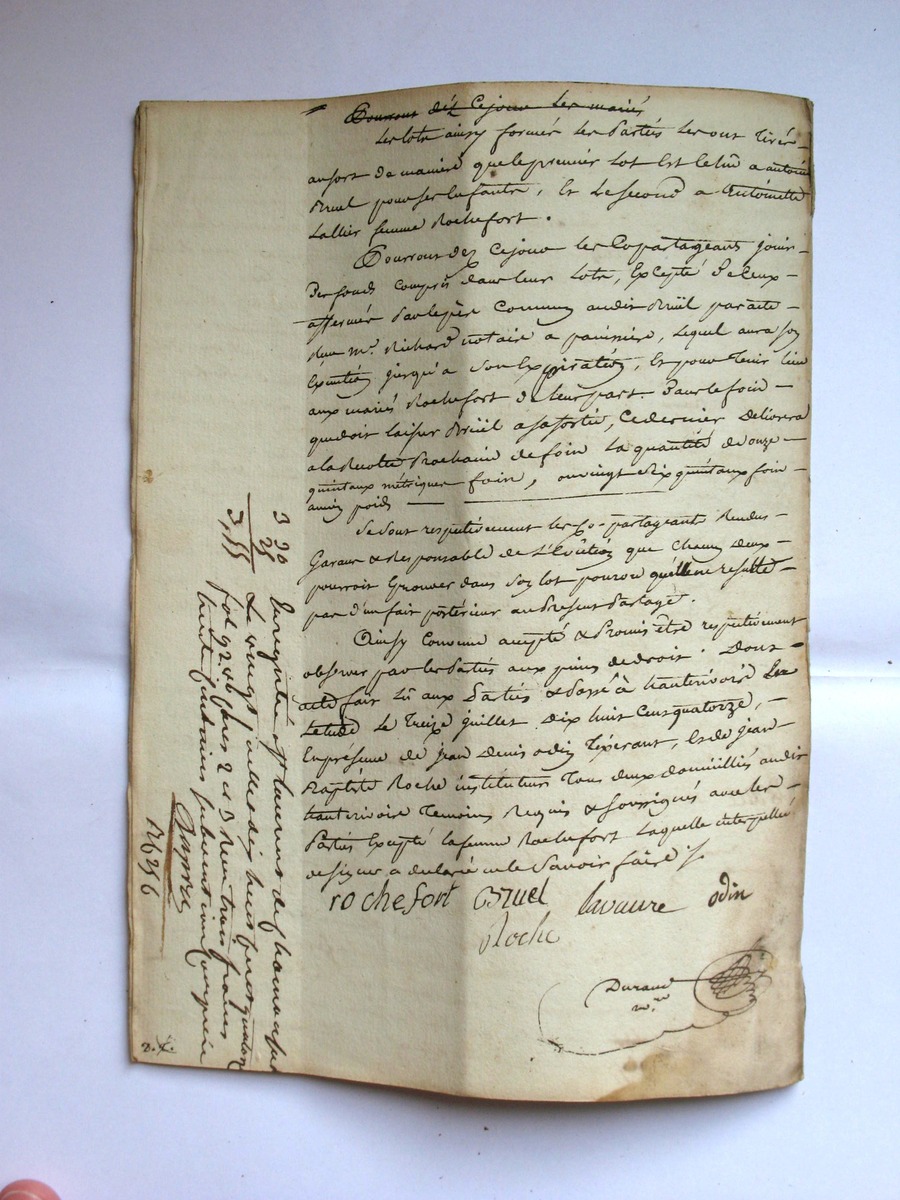 Pourront déz Cejour les mariés
Les lots ainsy formés les Parties les ont tirés
au sort de maniere que le premier Lot Est échu a antoine
Bruel pour ses Enfants, Et Le second a Antoinette
Lallier femme Rochefort.
Pourront dez Cejour les Copartageants jouir
des fonds compris dans leur Lots, Excepté de Ceux
affermés Par le père Commun audit Bruël par acte
Reçu Me. Richard notaire a , lequel aura son
Execution jusqu'a son Expiration, Et pour tenir lieu
aux mariés Rochefort de leur part Dans le foin
que doit laisser Bruël a sa sortie, Ce dernier délivrera
a la Recolte Prochaine de foin La quantité de onze
quintaux métriques foin, ou vingt Dix quintaux foin
ancien poids
Se sont respectivement les Co-partageants Rendus
Garans & Responsable de L'Eviction que Chacun deux
pourroit Eprouver dans Son lot pourvu quelle ne resulte
pas d'un fait postérieur au Présent Partage.
Ainsy Convenu accepté & Promis être respectivement
observer par les Parties aux peines de droit. Dont
acte fait Lû aux Parties & Passé à hauterivoire En
Létude Le treize juillet Dix huit Cent quatorze,
En présence de Jean Denis odin , Et de jean
Baptiste Roche instituteur Tous deux domiciliés audit
hauterivoire Temoins Requis & Soussignés avec les
Parties Excepté la femme Rochefort Laquelle interpellée
de Signer a déclaré ne le Savoir faire
rochefort Bruel lavaure odin
Roche
Durand
nre
3 30
25
3,55
Enregistré à St Laurent de Chamousset
Le vingt juillet dix huit cent quatorze
fol 92. vo cases 2 et 3 Reçu trois francs
trente centimes subvention comprise

R 6256